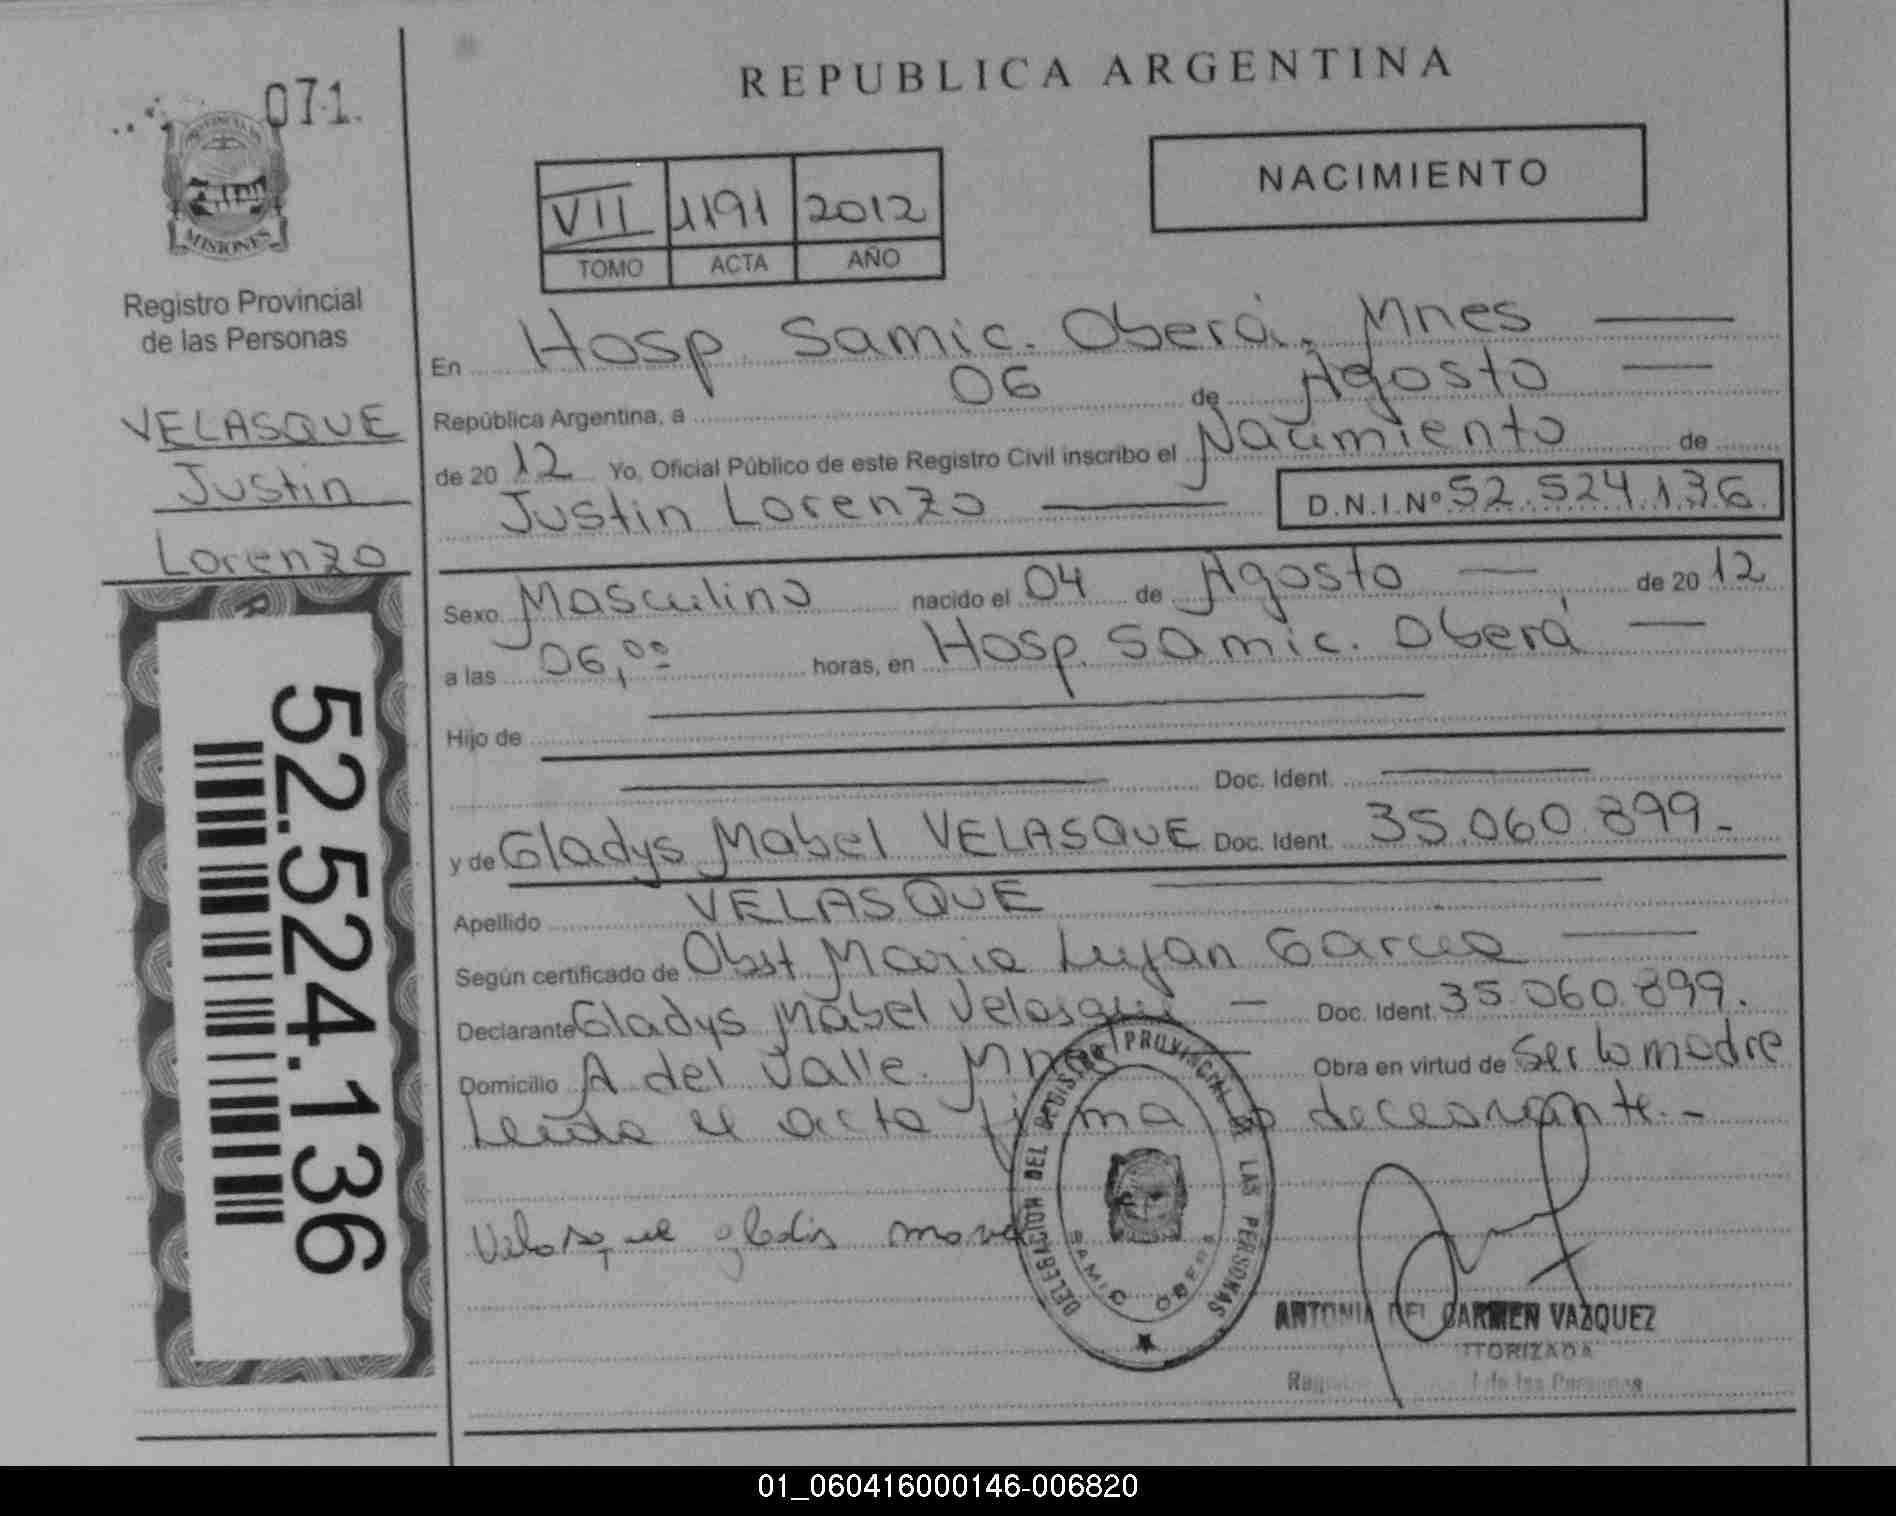 071.
PROVINCIA DE
MISIONES
Registro Provincial
de las Personas
VELASQUE
Justin
Lorenzo
52.524.136
REPUBLICA ARGENTINA
NACIMIENTO
VII 1191 2012
TOMO ACTA AÑO
En Hosp. Samic. Oberá, Mnes
República Argentina, a 06 de Agosto
de 2012 Yo, Oficial Público de este Registro Civil inscribo el Nacimiento de
Justin Lorenzo D.N.I.Nº 52.524.136
Sexo Masculino nacido el 04 de Agosto de 2012
a las 06,00 horas, en Hosp. Samic. Oberá
Hijo de
Doc. Ident.
y de Gladys Mabel VELASQUE Doc. Ident. 35.060.899.-
Apellido VELASQUE
Según certificado de Obst Maria Lujan Garcia
Declarante Gladys Mabel Velasque Doc. Ident. 35.060.899.
Domicilio A del Valle. Mnes Obra en virtud de Ser la madre
Leida el acta firma la declarante.-
Velasque gladis
DELEGACION DEL REGISTRO PROVINCIAL DE LAS PERSONAS
SAMIC OBERA
ANTONIA DEL CARMEN VAZQUEZ
de las Personas
01_060416000146-006820